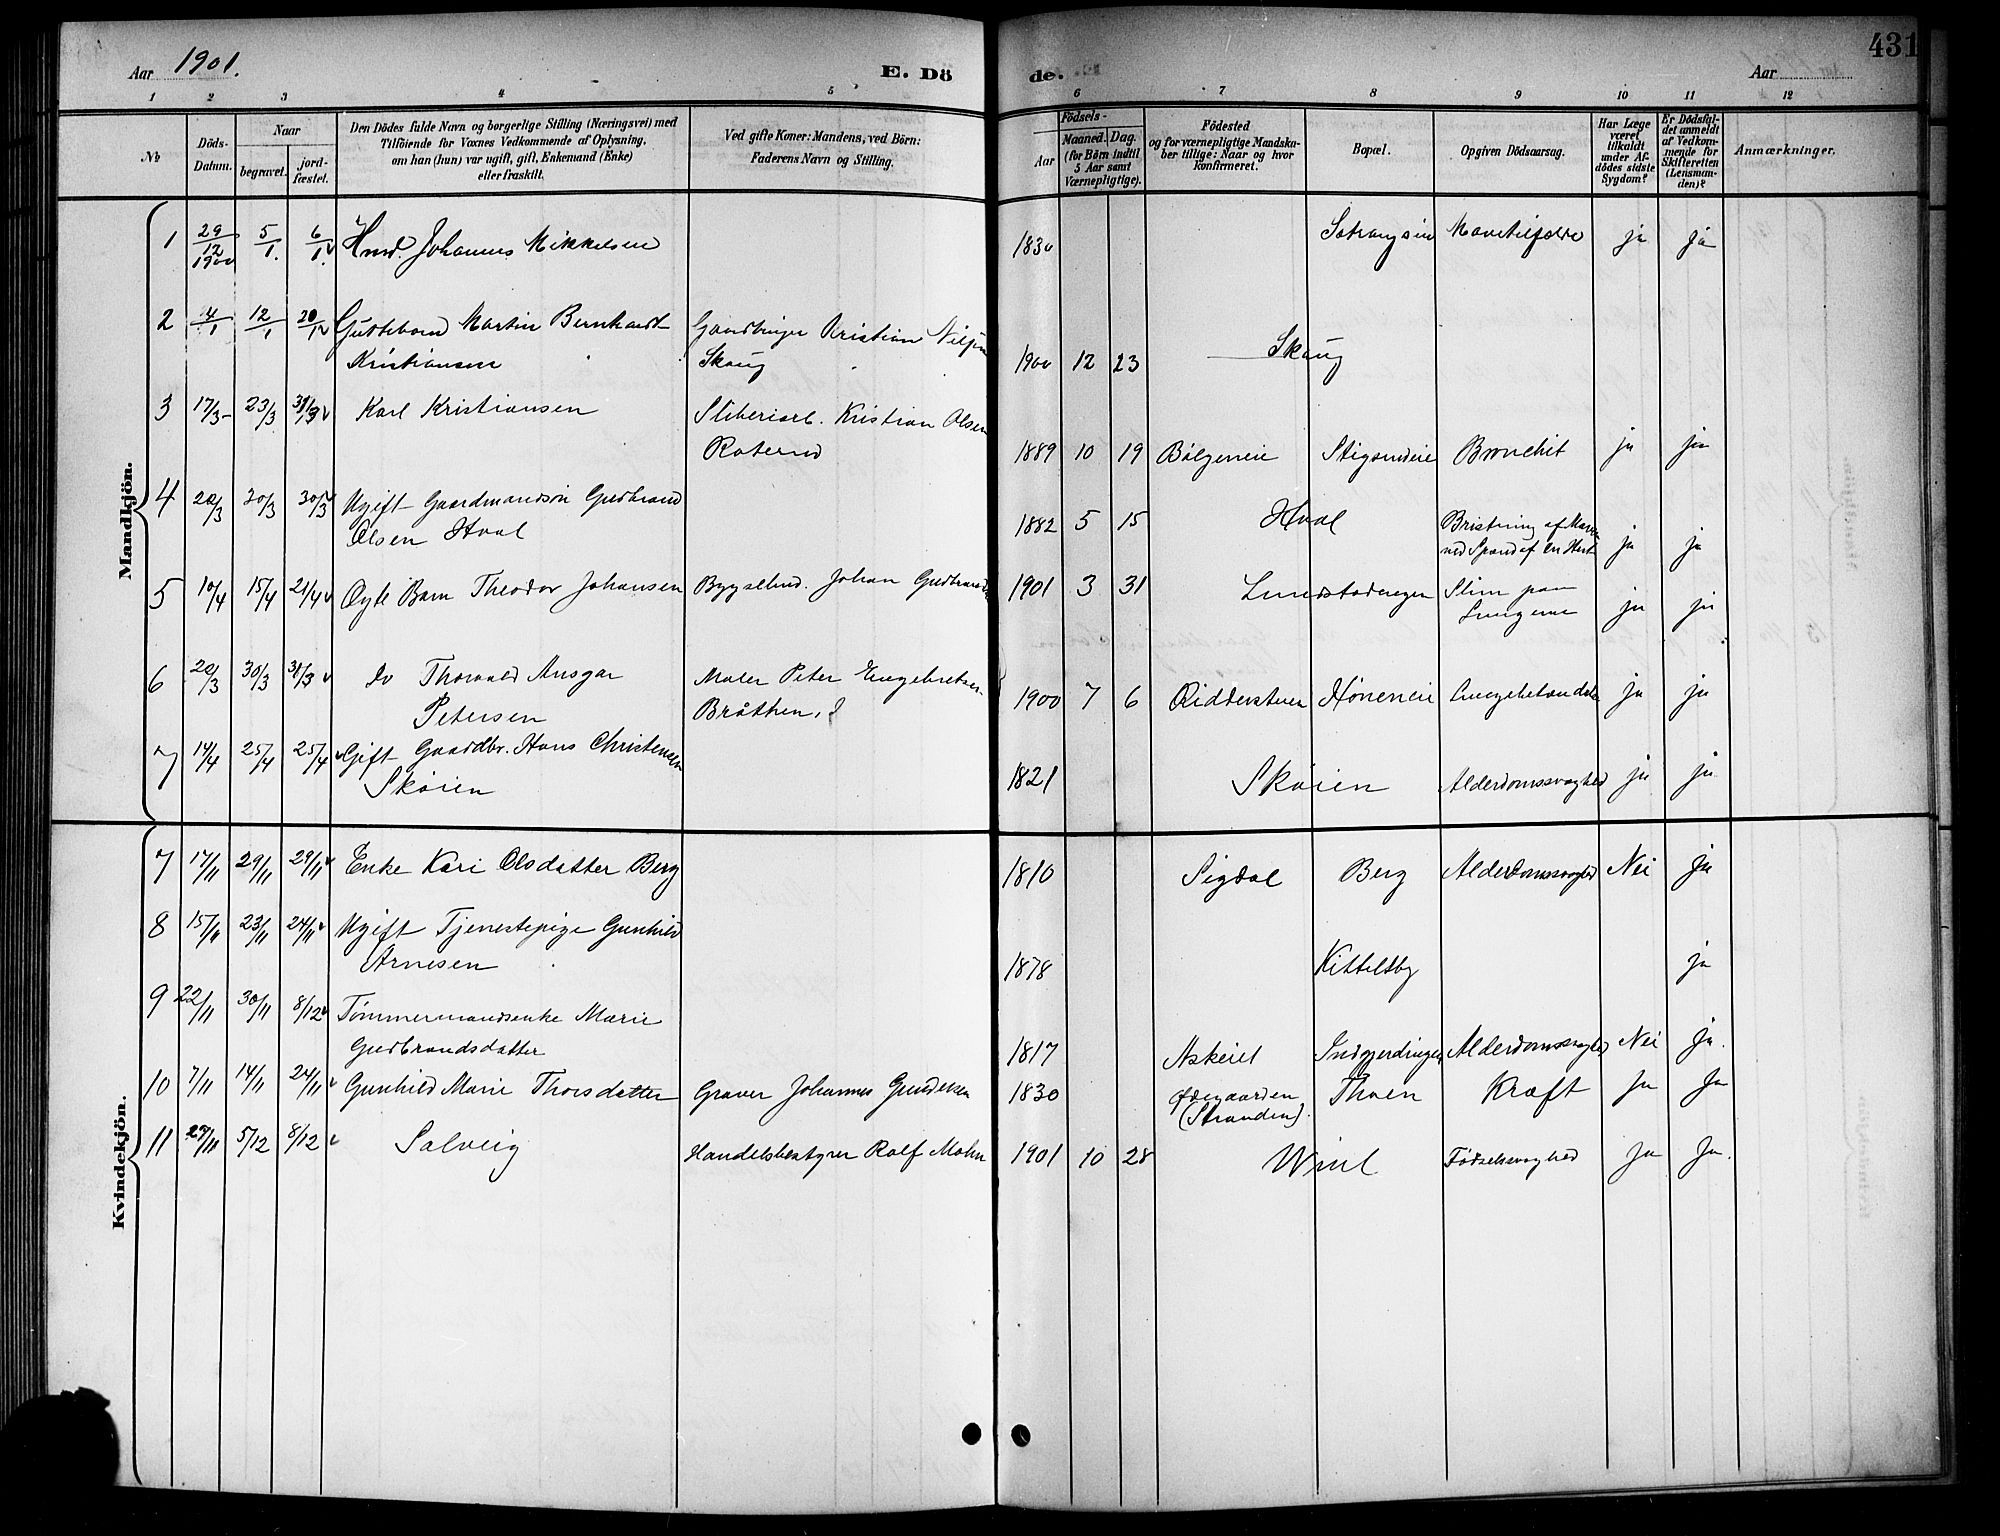 Aar 1901.
E. Dö
de.
Aar
431
1 2 3 4 5 6 7 8 9 10 11 12
No
Döds-
Datum.
Naar
begravet.
jord-
fæstet.
Den Dödes fulde Navn og borgerlige Stilling (Næringsvei) med
Tilföiende for Voxnes Vedkommende af Oplysning,
om han (hun) var ugift, gift, Enkemand (Enke)
eller fraskilt.
Ved gifte Koner: Mandens, ved Börn:
Faderens Navn og Stilling.
Födsels-
Aar
Maaned.
Dag.
(for Börn indtil
5 Aar samt
Værnepligtige).
Födested
og for værnepligtige Mandska-
ber tillige: Naar og hvor
konfirmeret.
Bopæl.
Opgiven Dödsaarsag.
Har Læge
været
tilkaldt
under Af-
dödes sidste
Sygdom?
Er Dödsfal-
det anmeldt
af Vedkom-
mende for
Skifteretten
(Lensman-
den)?
Anmærkninger.
Mandkjön.
1 29/12 1900 5/1. 6/1. Johannes Mikkelsen 1830 Mavetilfælde ja ja
2 4/1 12/1 20/1 Martin Bernhardt Kristian 1900 12 23 Skaug
Kristiansen Skaug
3 17/3 23/3 31/3 Karl Kristiansen Kristian Olsen
1889 10 19 Bronchit ja ja
4 20/3 30/3 30/3 Ugift Gaardmandsön Gudbrand
Olsen Hval 1882 5 15 Hval Bristning af
af en Hest ja ja
5 10/4 15/4 21/4 Barn Theodor Johansen Johan 1901 3 31 Slim paa
Lungerne ja ja
6 20/3 30/3 31/3 do Thorvald Ansgar Maler Peter Engebretsen
Petersen Bråthen 1900 7 6 Höneneie ja ja
7 14/4 25/4 25/4 Gift Gaardbr. Hans Christensen
Skóien 1821 Skóien Alderdomssvaghed ja ja
Kvindekjön.
7 17/11 29/11 29/11 Enke Kari Olsdatter Berg 1810 Sigdal Berg Alderdomssvaghed Nei ja
8 15/11 23/11 24/11 Ugift Tjenestepige Gunhild
Arnesen 1878 Kittelsby ja
9 22/11 30/11 8/12 Tömmermandsenke Marie
Gudbrandsdatter 1817 Askeiet Alderdomssvaghed Nei ja.
10 7/11 14/11 24/11 Gunhild Marie Thorsdatter Graver Johannes 1830 Thoen Kræft ja ja
(Stranden).
11 5/12 8/12 Solveig Handelsbestyrer Rolf Mohn 1901 10 28 Födselssvaghed ja ja.